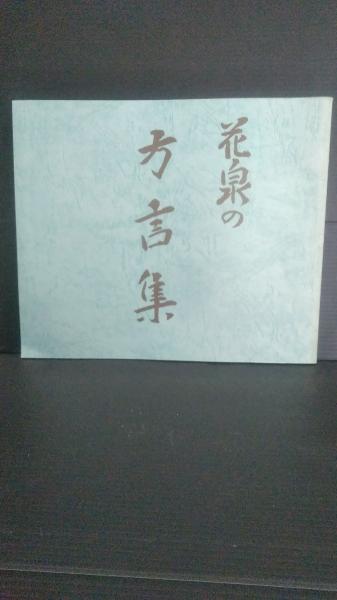 花泉の
方言集